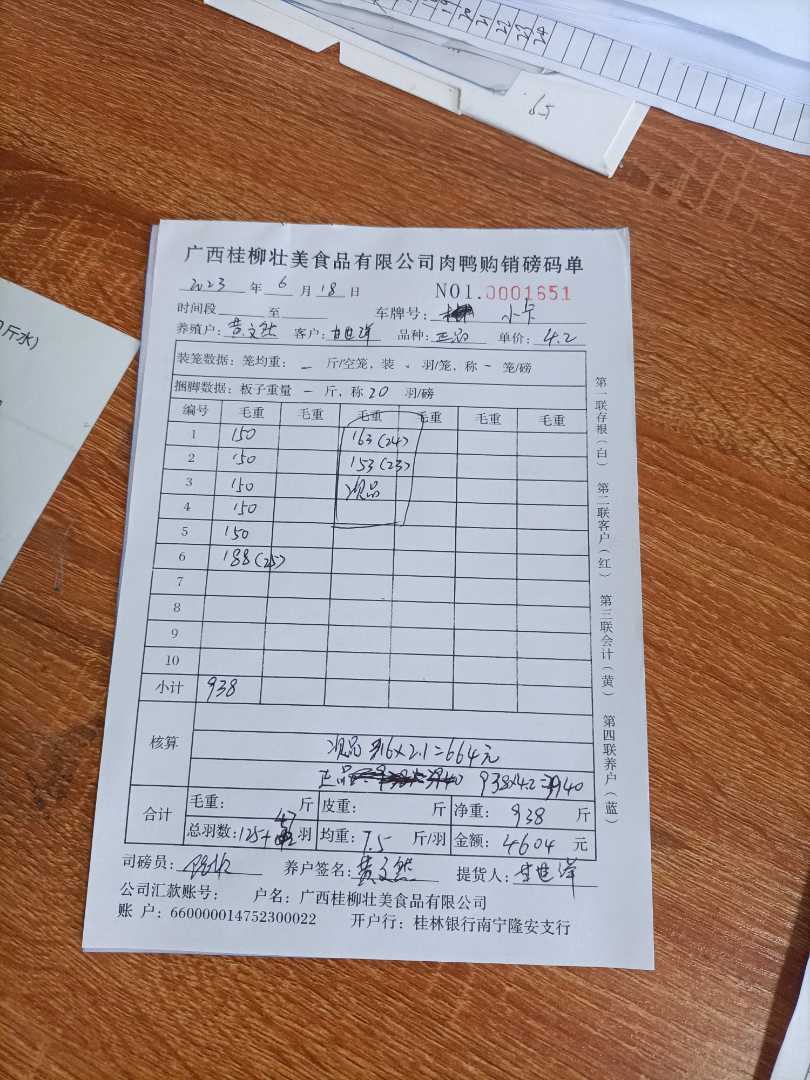 19 20 21 22 23 24
65
0斤水)
广西桂柳壮美食品有限公司肉鸭购销磅码单
2023 年 6 月 18 日 NO1.0001651
时间段 至 车牌号: 小卡
养殖户: 黄文然 客户: 甘世洋 品种: 正品 单价: 4.2
装笼数据: 笼均重: - 斤/空笼, 装 羽/笼, 称 - 笼/磅
捆脚数据: 板子重量 - 斤, 称 20 羽/磅
编号 毛重 毛重 毛重 毛重 毛重 毛重
1 150 163(24)
2 150 153(23)
3 150 次品
4 150
5 150
6 188(25)
7
8
9
10
小计 938
核算
次品 316×2.1=664元
正品 938×4.2=3940
合计 毛重: 斤 皮重: 斤 净重: 938 斤
总羽数: 125+47 羽 均重: 7.5 斤/羽 金额: 4604 元
司磅员: 养户签名: 黄文然 提货人: 甘世洋
公司汇款账号: 户名: 广西桂柳壮美食品有限公司
账 户: 660000014752300022 开户行: 桂林银行南宁隆安支行
第一联存根(白) 第二联客户(红) 第三联会计(黄) 第四联养户(蓝)